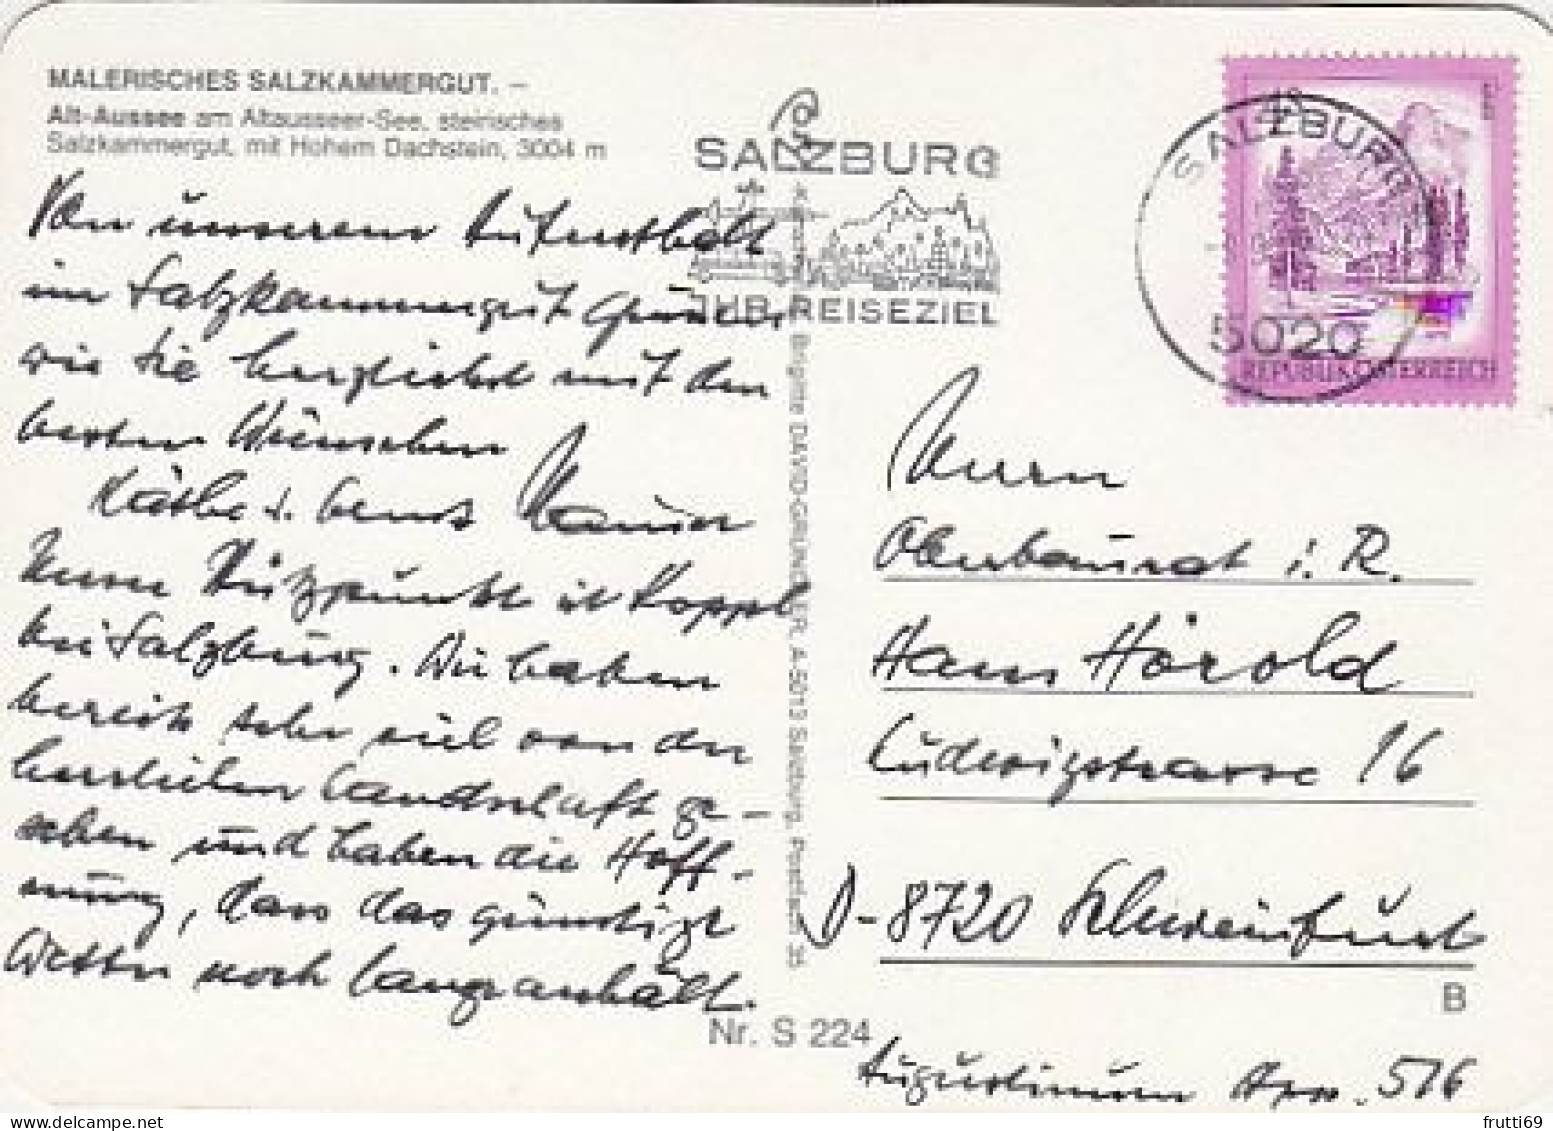 MALERISCHES SALZKAMMERGUT. –
Alt-Aussee am Altausseer-See, steirisches
Salzkammergut, mit Hohem Dachstein, 3004 m
Von unserem Aufenthalt
im Salzkammergut grüssen
wir Sie herzlichst mit den
besten Wünschen
Käthe u.
Unser Stützpunkt ist Koppl
bei Salzburg. Wir haben
bereits sehr viel von der
herrlichen Landschaft ge-
sehen und haben die Hoff-
nung, dass das günstige
Wetter noch lange anhält.
SALZBURG
IHR REISEZIEL
SALZBURG
5020
REPUBLIK ÖSTERREICH
Brigitte DAVID-GRÜNDLER, A-5013 Salzburg, Postfach 35
Herrn
Oberbaurat i. R.
Hans Hörold
Ludwigstrasse 16
D-8720 Schweinfurt
B
Nr. S 224
Augustinum App. 516
frutti69